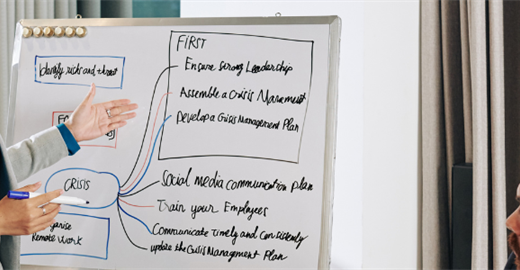 Identify risks and threat
CRISIS
Remote Work
FIRST
Ensure Strong Leadership
Assemble a Crisis
Develop a Crisis Management Plan
Social media communication plan
Train your Employees
Communicate Timely and Consistently
update the Crisis Management Plan